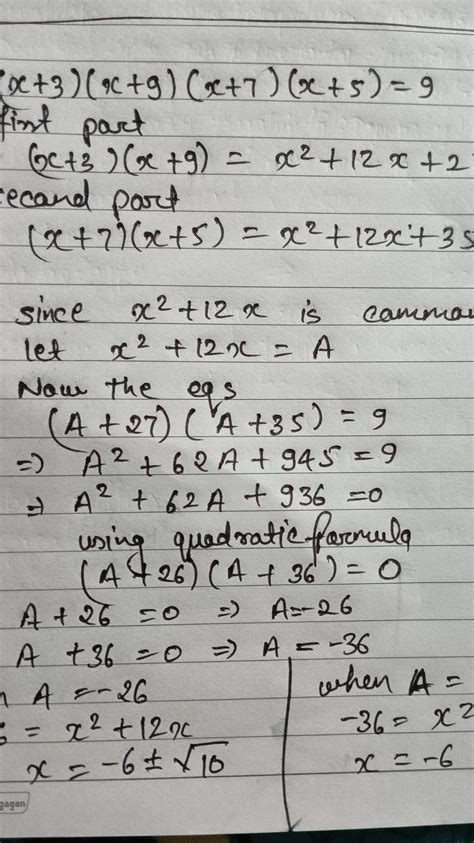 (x+3)(x+9)(x+7)(x+5)=9
first part
(x+3)(x+9) = x²+12x+2
second part
(x+7)(x+5) = x²+12x+35
since x²+12x is common
let x²+12x = A
Now the eqs
(A+27)(A+35) = 9
⇒ A²+62A+945=9
⇒ A²+62A+936=0
using quadratic formula
(A+26)(A+36)=0
A+26=0 ⇒ A=-26
A+36=0 ⇒ A=-36
A=-26
= x²+12x
x = -6±√10
when A =
-36 = x²
x = -6
gagan